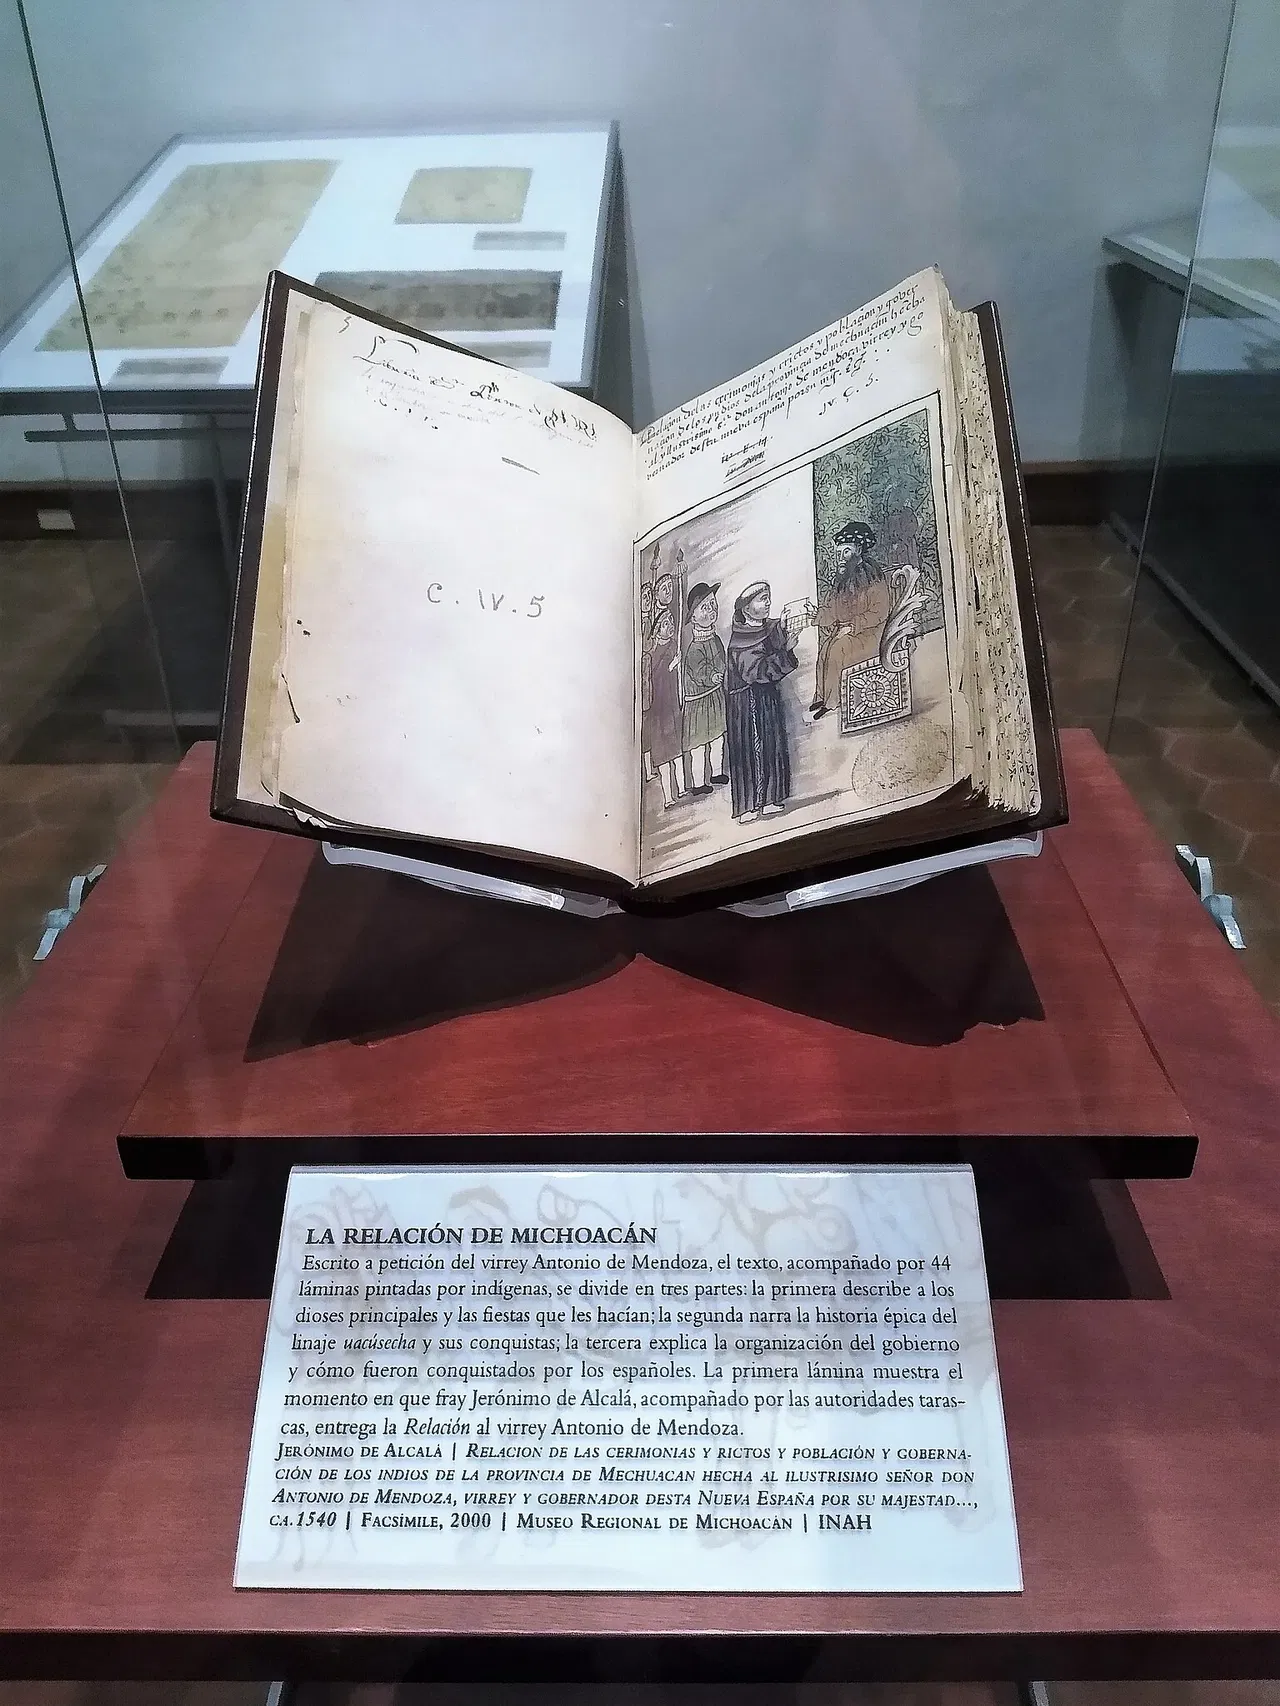 5
C . IV . 5
Relacion delas cerimonias y rictos y poblacion y gober
nacion delos yndios dela provincia de mechuacan hecha
al yllustrisimo s: don antonio de mendoça virrey y go
vernador desta nueva españa por su mg. &c.
IV. C. 5.
LA RELACIÓN DE MICHOACÁN
Escrito a petición del virrey Antonio de Mendoza, el texto, acompañado por 44
láminas pintadas por indígenas, se divide en tres partes: la primera describe a los
dioses principales y las fiestas que les hacían; la segunda narra la historia épica del
linaje uacúsecha y sus conquistas; la tercera explica la organización del gobierno
y cómo fueron conquistados por los españoles. La primera lámina muestra el
momento en que fray Jerónimo de Alcalá, acompañado por las autoridades taras-
cas, entrega la Relación al virrey Antonio de Mendoza.
JERÓNIMO DE ALCALÁ | RELACION DE LAS CERIMONIAS Y RICTOS Y POBLACIÓN Y GOBERNA-
CIÓN DE LOS INDIOS DE LA PROVINCIA DE MECHUACAN HECHA AL ILUSTRISIMO SEÑOR DON
ANTONIO DE MENDOZA, VIRREY Y GOBERNADOR DESTA NUEVA ESPAÑA POR SU MAJESTAD...,
CA. 1540 | FACSÍMILE, 2000 | MUSEO REGIONAL DE MICHOACÁN | INAH